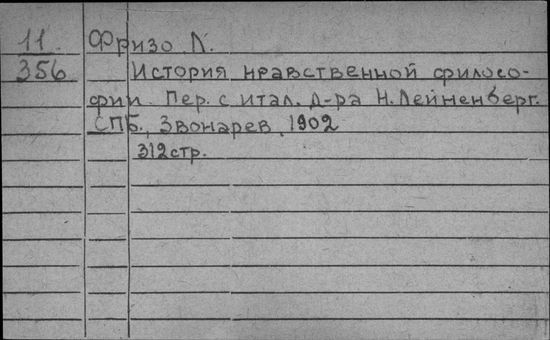 11. Фризо Л.
356 История нравственной филосо-
фии. Пер. с итал. Д-ра Н. Лейненберг.
СПБ., Звонарев, 1902
312 стр.